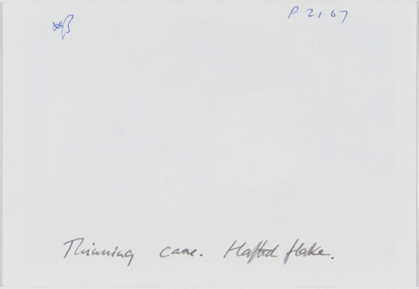 P 21.67
Thinning cane. Hafted flake.